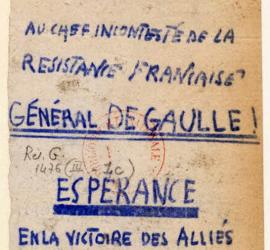 AU CHEF INCONTESTÉ DE LA
RESISTANCE FRANCAISE
GÉNÉRAL DE GAULLE !
Res. G.
1476 (III - 1c)
ESPÉRANCE
EN LA VICTOIRE DES ALLIÉS